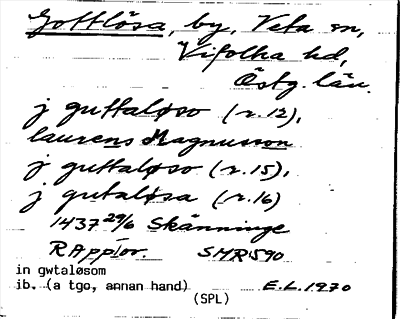 Gottlösa, by, Veta sn,
Vifolka hd,
Östg. län.
j guttaløso (r.12),
laurens Magnusson
j guttaløso (r.15),
j gutaløsa (r.16)
1437 29/6 Skänninge
RApp1 or. SMR 1590
in gwtaløsom
ib. (a tgo, annan hand) E.L. 1970
(SPL)